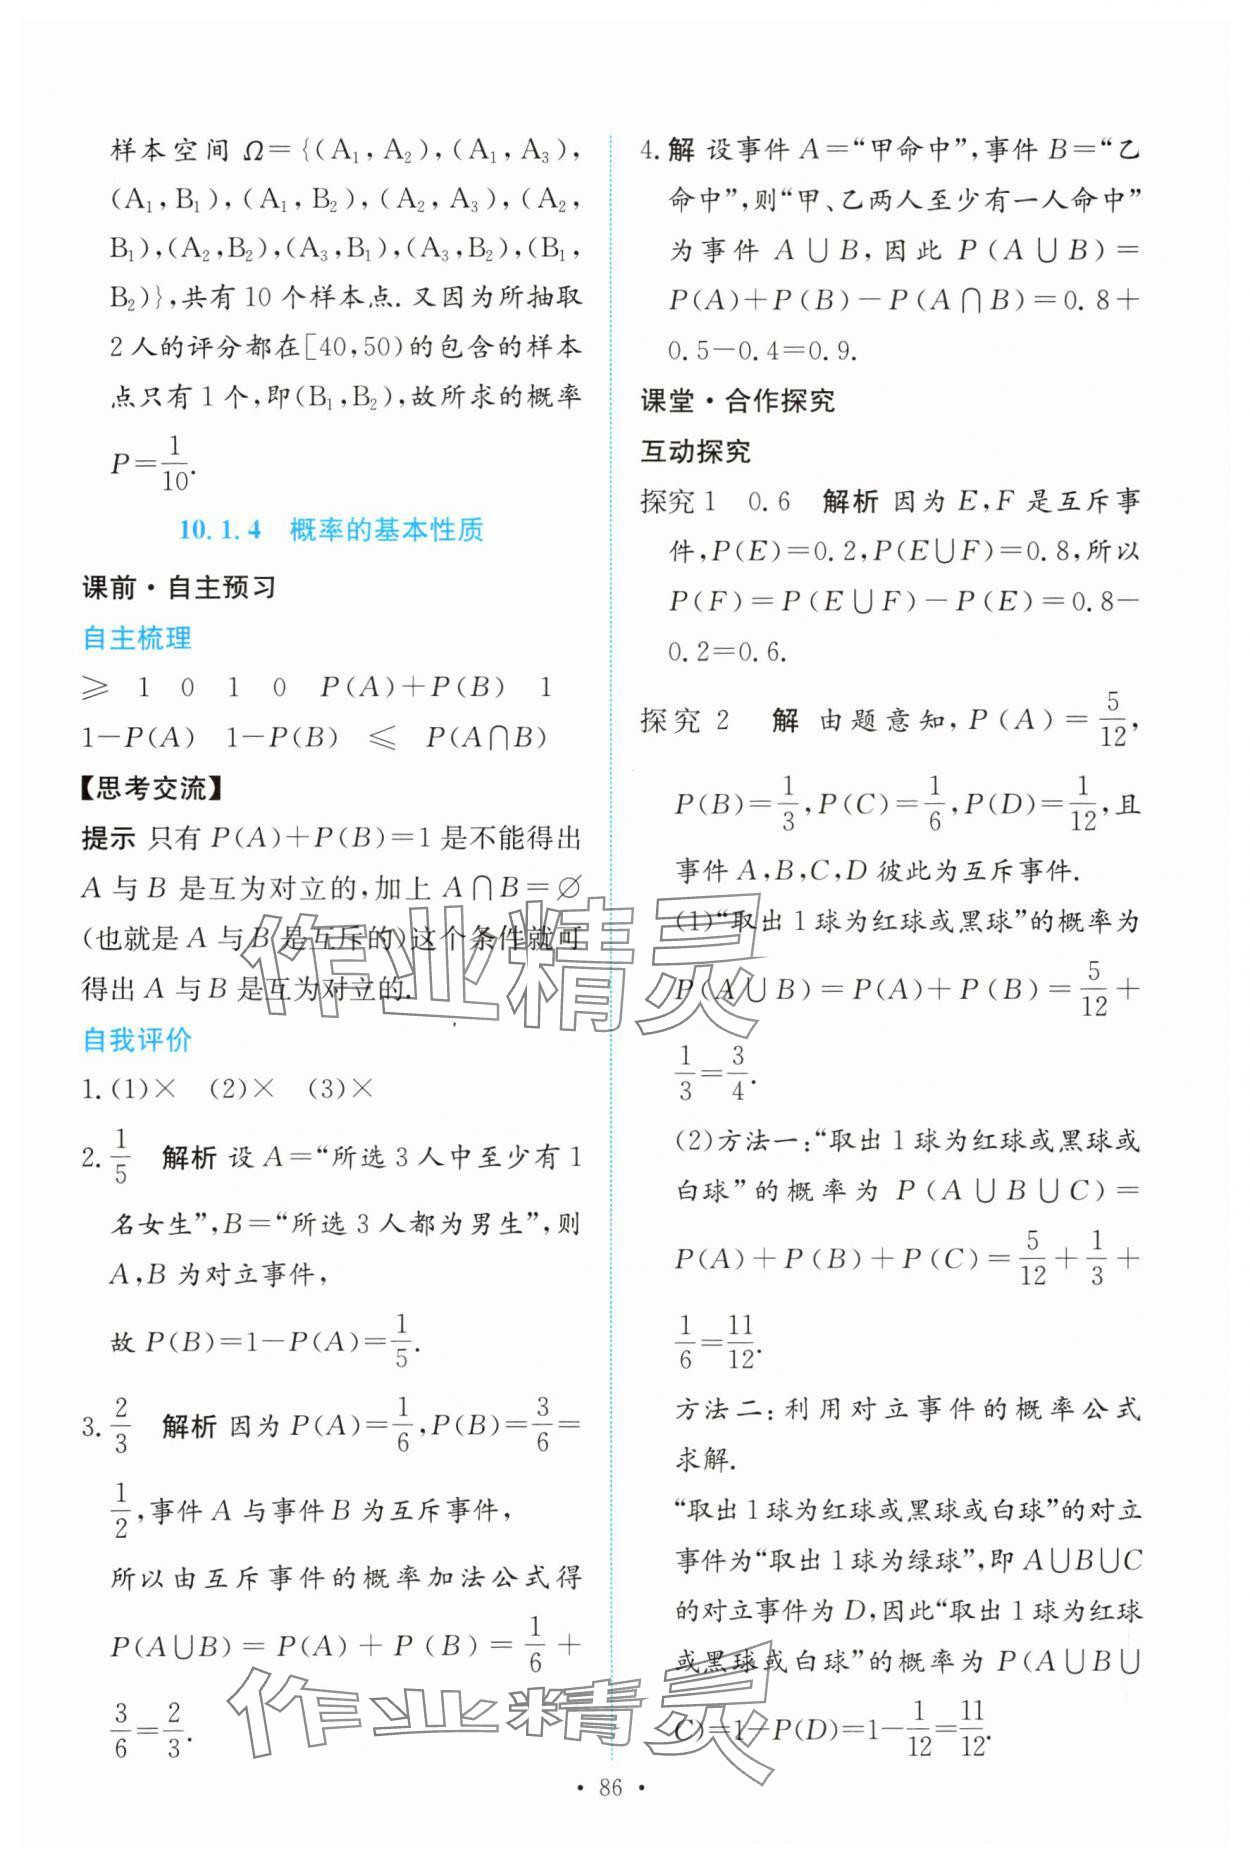 样本空间 Ω={(A₁,A₂),(A₁,A₃),
(A₁,B₁),(A₁,B₂),(A₂,A₃),(A₂,
B₁),(A₂,B₂),(A₃,B₁),(A₃,B₂),(B₁,
B₂)},共有 10 个样本点. 又因为所抽取
2 人的评分都在[40,50)的包含的样本
点只有 1 个,即(B₁,B₂),故所求的概率
P=1/10.
10.1.4 概率的基本性质
课前·自主预习
自主梳理
≥ 1 0 1 0 P(A)+P(B) 1
1-P(A) 1-P(B) ≤ P(A∩B)
【思考交流】
提示 只有 P(A)+P(B)=1 是不能得出
A 与 B 是互为对立的,加上 A∩B=∅
(也就是 A 与 B 是互斥的)这个条件就可
得出 A 与 B 是互为对立的.
自我评价
1. (1)× (2)× (3)×
2. 1/5 解析 设 A=“所选 3 人中至少有 1
名女生”,B=“所选 3 人都为男生”,则
A,B 为对立事件,
故 P(B)=1-P(A)=1/5.
3. 2/3 解析 因为 P(A)=1/6,P(B)=3/6=
1/2,事件 A 与事件 B 为互斥事件,
所以由互斥事件的概率加法公式得
P(A∪B)=P(A)+P(B)=1/6+
3/6=2/3.
4. 解 设事件 A=“甲命中”,事件 B=“乙
命中”,则“甲、乙两人至少有一人命中”
为事件 A∪B,因此 P(A∪B)=
P(A)+P(B)-P(A∩B)=0.8+
0.5-0.4=0.9.
课堂·合作探究
互动探究
探究 1 0.6 解析 因为 E,F 是互斥事
件,P(E)=0.2,P(E∪F)=0.8,所以
P(F)=P(E∪F)-P(E)=0.8-
0.2=0.6.
探究 2 解 由题意知,P(A)=5/12,
P(B)=1/3,P(C)=1/6,P(D)=1/12,且
事件 A,B,C,D 彼此为互斥事件.
(1)“取出 1 球为红球或黑球”的概率为
P(A∪B)=P(A)+P(B)=5/12+
1/3=3/4.
(2)方法一:“取出 1 球为红球或黑球或
白球”的概率为 P(A∪B∪C)=
P(A)+P(B)+P(C)=5/12+1/3+
1/6=11/12.
方法二:利用对立事件的概率公式
求解.
“取出 1 球为红球或黑球或白球”的对立
事件为“取出 1 球为绿球”,即 A∪B∪C
的对立事件为 D,因此“取出 1 球为红球
或黑球或白球”的概率为 P(A∪B∪
C)=1-P(D)=1-1/12=11/12.
作业精灵
作业精灵
· 86 ·